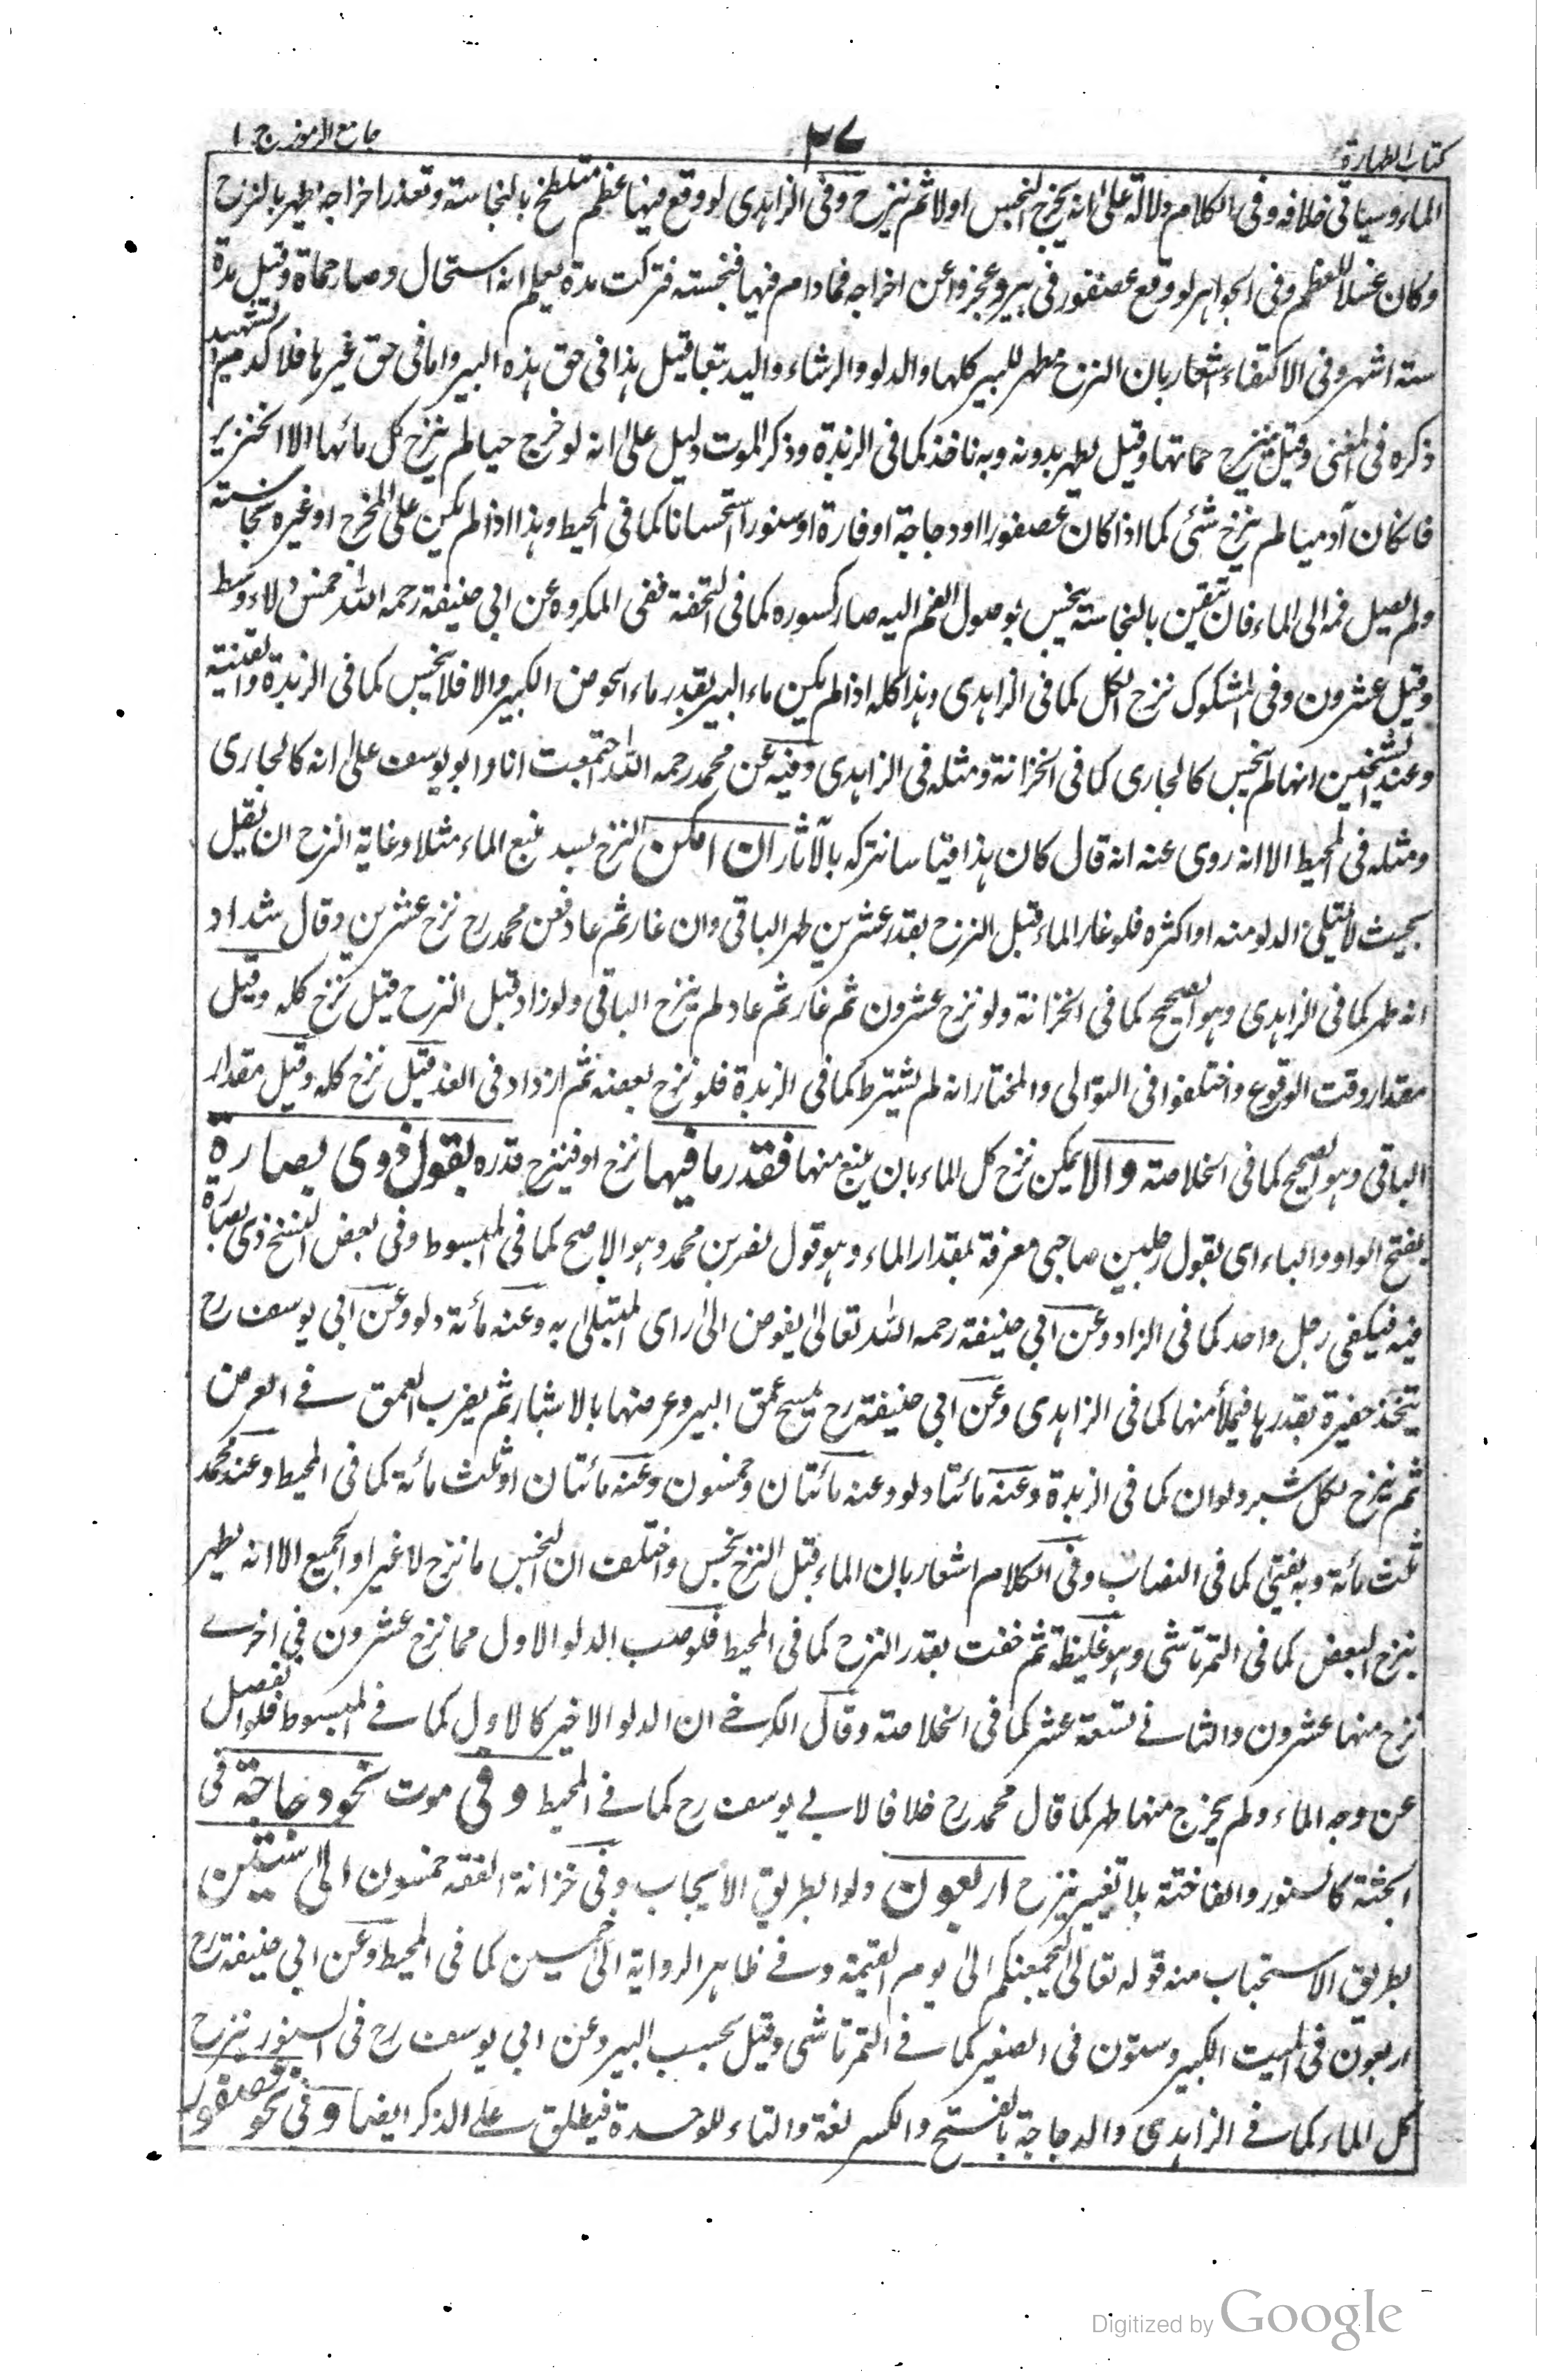 كتاب الطهارة
٢٧
جامع الرموز ج ١
الماء وسياتى خلافه وفى الكلام دلالة على انه يخرج النجس اولا ثم ينزح وفى الزاهدى لو وقع فيها عظم متلطخ بالنجاسة وتعذر اخراجه طهر بالنزح
وكان غسلا للعظم وفى الجواهر لو وقع عصفور فى بير وعجزوا عن اخراجه فما دام فيها فنجسته فتركت مدة يعلم انه استحال وصار حماة وقيل مدة
ستة اشهر وفى الاكتفاء اشعار بان النزح مطهر للبير كلها والدلو والرشاء واليد تبعا قيل هذا فى حق هذه البير واما فى حق غيرها فلا كدم الشهيد
ذكره فى المغنى وقيل ينزح حماتها وقيل يطهر بدونه وبه ناخذ كما فى الزبدة وذكر الموت دليل على انه لو خرج حيا لم ينزح كل مائها الا الخنزير
فان كان آدميا لم ينزح شئ كما اذا كان عصفورا او دجاجة او فارة او سنورا استحسانا كما فى المحيط وهذا اذا لم يكن على المخرج او غيره نجاسة
ولم يصل فمه الى الماء فان تيقن بالنجاسة نجس بوصول الفم اليه صار كسوره كما فى التحفة ففى المكروه عن ابى حنيفة رحمه الله خمس دلاء وسط
وقيل عشرون وفى المشكوك نزح الكل كما فى الزاهدى وهذا كله اذا لم يكن ماء البير بقدر ماء الحوض الكبير والا فلا ينجس كما فى الزبدة والقنية
وعند الشيخين انها لم ينجس كالجارى كما فى الخزانة ومثله فى الزاهدى وفيه عن محمد رحمه الله اجتمعت انا وابو يوسف على انه كالجارى
ومثله فى المحيط الا انه روى عنه انه قال كان هذا قياسا نتركه بالآثار ان امكن النزح بسد منبع الماء مثلا وغاية النزح ان يقل
بحيث لا يمتلئ الدلو منه او اكثره فلو غار الماء قبل النزح بقدر عشرين طهر الباقى وان غار ثم عاد فعن محمد رح نزح عشرين وقال شداد
انه طهر كما فى الزاهدى وهو الصحيح كما فى الخزانة ولو نزح عشرون ثم غار ثم عاد لم ينزح الباقى ولو زاد قبل النزح قيل نزح كله وقيل
مقدار وقت الوقوع واختلفوا فى التوالى والمختار انه لم يشترط كما فى الزبدة فلو نزح بعضه ثم ازداد فى الغد قيل نزح كله وقيل مقدار
الباقى وهو الصحيح كما فى الخلاصة والا يمكن نزح كل الماء بان ينبع منها فقدر ما فيها نزح او فينزح قدره بقول ذوى بصارة
بفتح الواو والباء اى بقول رجلين صاحبى معرفة بمقدار الماء وهو قول نصر بن محمد وهو الاصح كما فى المبسوط وفى بعض النسخ ذى بصارة
فيه فيكفى رجل واحد كما فى الزاد وعن ابى حنيفة رحمه الله تعالى يفوض الى راى المبتلى به وعنه مائة دلو وعن ابى يوسف رح
يتخذ حفيرة بقدرها فيملأ منها كما فى الزاهدى وعن ابى حنيفة رح يمسح عمق البير وعرضها بالاشبار ثم يضرب العمق فے العرض
ثم ينزح لكل شبر دلوان كما فى الزبدة وعنه مائتا دلو وعنه مائتان وخمسون وعنه مائتان او ثلث مائة كما فى المحيط وعند محمد
ثلث مائة وبه يفتى كما فى النصاب وفى الكلام اشعار بان الماء قبل النزح نجس واختلف ان النجس ما نزح لا غير او الجميع الا انه يطهر
بنزح البعض كما فى التمرتاشى وهو غليظة ثم خفت بقدر النزح كما فى المحيط فلو صب الدلو الاول مما نزح عشرون فى اخرے
نزح منها عشرون والثانے تسعة عشر كما فى الخلاصة وقال الكرخے ان الدلو الاخير كالاول كما فے المبسوط فلو انفصل
عن وجه الماء ولم يخرج منها طهر كما قال محمد رح خلافا لابے يوسف رح كما فے المحيط وفى موت نحو دجاجة فى
الجثة كالسنور والفاختة بلا تغير ينزح اربعون دلوا بطريق الايجاب وفى خزانة الفقه خمسون الى ستين
بطريق الاستحباب منه قوله تعالى ليجمعنكم الى يوم القيمة وفے ظاهر الرواية الى خمسين كما فى المحيط وعن ابى حنيفة رح
اربعون فى الميت الكبير وستون فى الصغير كما فے التمرتاشى وقيل بحسب البير وعن ابى يوسف رح فى السنور نزح
كل الماء كما فے الزاهدى والدجاجة بالفتح والكسر لغة والتاء للوحدة فيطلق على الذكر ايضا وفى نحو عصفور
Digitized by Google